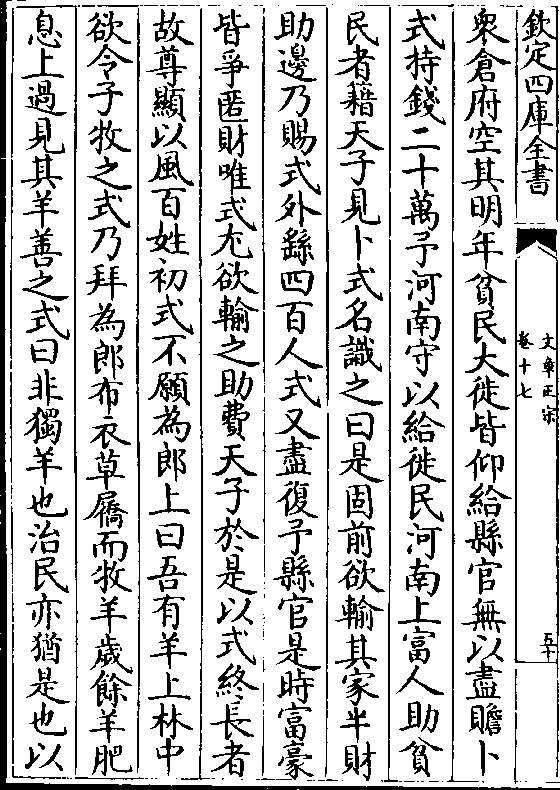 欽定四庫全書
文章正宗
卷十七
五十
衆倉府空其明年貧民大徙皆仰給縣官無以盡贍卜
式持錢二十萬予河南守以給徙民河南上富人助貧
民者籍天子見卜式名識之曰是固前欲輸其家半財
助邊乃賜式外繇四百人式又盡復予縣官是時富豪
皆爭匿財唯式尤欲輸之助費天子於是以式終長者
故尊顯以風百姓初式不願為郎上曰吾有羊上林中
欲令子牧之式乃拜為郎布衣草屩而牧羊歲餘羊肥
息上過見其羊善之式曰非獨羊也治民亦猶是也以